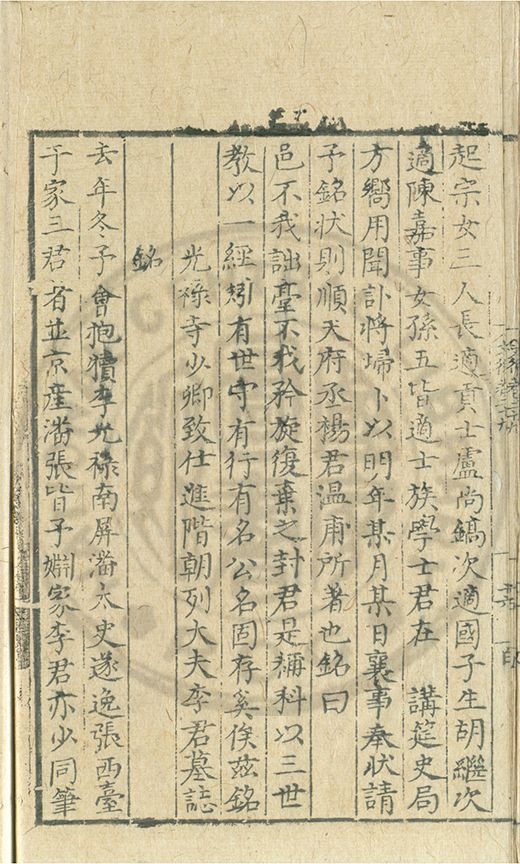 起宗女三人長適貢士盧尚鎬次適國子生胡繼次
適陳嘉事女孫五皆適士族學士君在　講筵史局
方嚮用聞訃將歸卜以明年某月某日襄事奉狀請
予銘狀則順天府丞楊君温甫所著也銘曰
邑不我詘臺不我矜旋復棄之封君是稱科以三世
教以一經矧有世守有行有名公名固存奚俟兹銘
光祿寺少卿致仕進階朝列大夫李君墓誌
銘
去年冬予會抱犢李光祿南屏潘太史遂逸張西臺
于家三君者並京産潘張皆予婣家李君亦少同筆